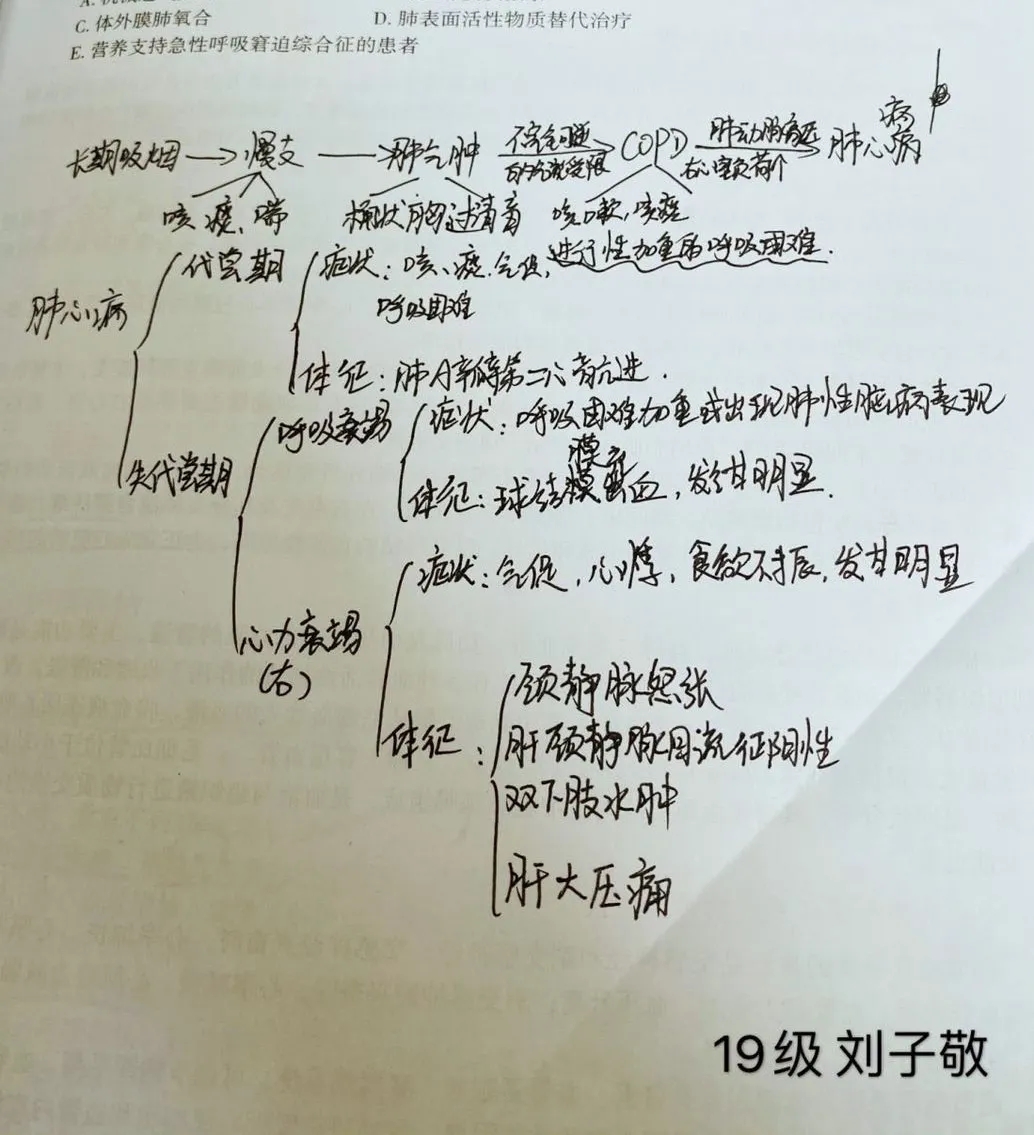 C. 体外膜肺氧合 D. 肺表面活性物质替代治疗
E. 营养支持急性呼吸窘迫综合征的患者
长期吸烟 → 慢支 → 肺气肿 不完全可逆 的气流受限 COPD 肺动脉高压 右心室负荷个 肺心病
咳、痰、喘 桶状胸 过清音 咳嗽,咳痰
肺心病
代偿期
症状:咳、痰、气促,进行性加重的呼吸困难.
呼吸困难
体征:肺A瓣第二心音亢进.
失代偿期
呼吸衰竭
症状:呼吸困难加重或出现肺性脑病表现
体征:球结膜充血,发绀明显.
心力衰竭
(右)
症状:气促,心悸,食欲不振,发绀明显
体征:
颈静脉怒张
肝颈静脉回流征阳性
双下肢水肿
肝大压痛
19级 刘子敬